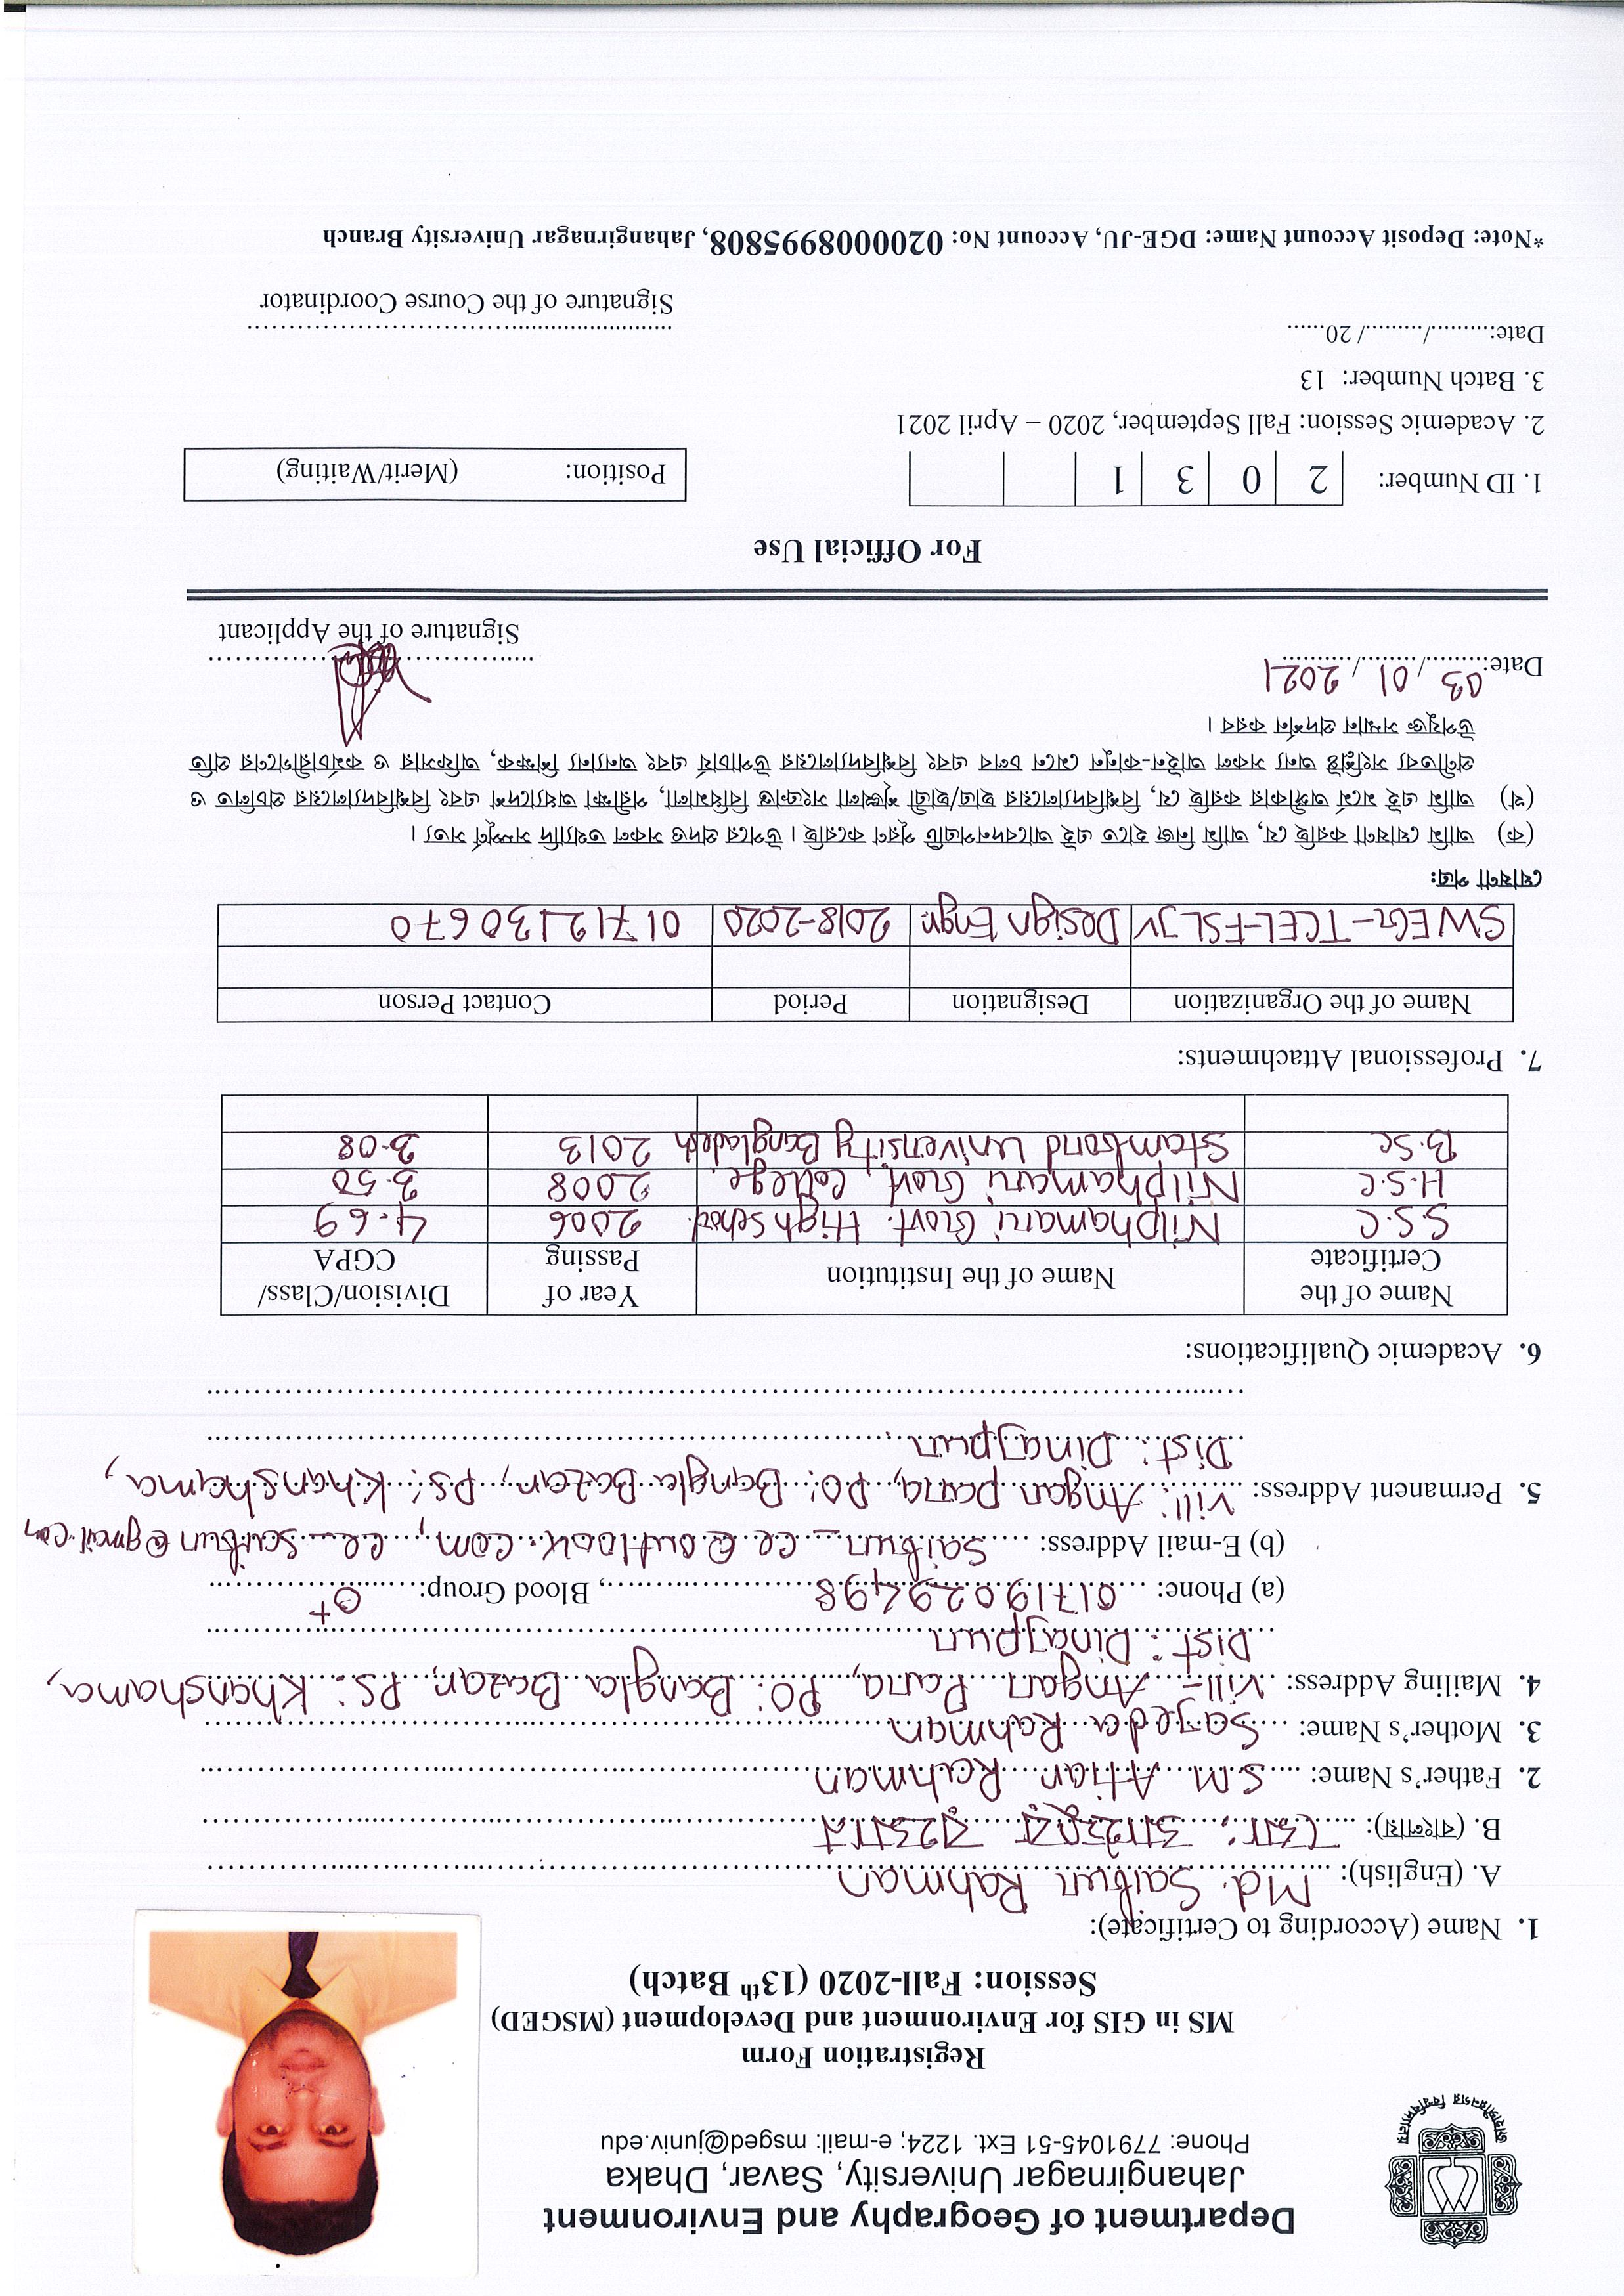 Department of Geography and Environment
Jahangirnagar University, Savar, Dhaka
Phone: 7791045-51 Ext. 1224; e-mail: msged@juniv.edu
জাহাঙ্গীরনগর বিশ্ববিদ্যালয়
Registration Form
MS in GIS for Environment and Development (MSGED)
Session: Fall-2020 (13th Batch)
1. Name (According to Certificate):
A. (English): Md. Saifur Rahman
B. (বাংলায়): মোঃ সাইফুর রহমান
2. Father's Name: S.M. Atiar Rahman
3. Mother's Name: Sajeda Rahman
4. Mailing Address: Vill- Angar Para, PO: Bangla Bazar, PS: Khanshama,
Dist: Dinajpur
(a) Phone: 01719029498, Blood Group: O+
(b) E-mail Address: saifur_ce@outlook.com, ce_saifur@gmail.com
5. Permanent Address: Vill: Angar para, PO: Bangla Bazar, PS: Khanshama,
Dist: Dinajpur
6. Academic Qualifications:
Name of the Certificate Name of the Institution Year of Passing Division/Class/CGPA
S.S.C Nilphamari Govt. High School 2006 4.69
H.S.C Nilphamari Govt. College 2008 3.50
B.Sc Stamford University Bangladesh 2013 3.08
7. Professional Attachments:
Name of the Organization Designation Period Contact Person
SWEG-TCEL-FSL JV Design Engr. 2018-2020 01712130670
ঘোষণা পত্র:
(ক) আমি ঘোষণা করছি যে, আমি নিজ হাতে এই আবেদনপত্রটি পূরণ করেছি। উপরে প্রদত্ত সকল তথ্যাদি সম্পূর্ণ সত্য।
(খ) আমি এই মর্মে অঙ্গীকার করছি যে, বিশ্ববিদ্যালয়ের ছাত্র/ছাত্রী শৃঙ্খলা সংক্রান্ত বিধিমালা, পরীক্ষা অধ্যাদেশ এবং বিশ্ববিদ্যালয়ের প্রচলিত ও
প্রণীতব্য সংশ্লিষ্ট অন্য সকল আইন-কানুন মেনে চলব এবং বিশ্ববিদ্যালয়ের উপাচার্য এবং অন্যান্য শিক্ষক, অফিসার ও কর্মচারীগণের প্রতি
উপযুক্ত সম্মান প্রদর্শন করব।
Date: 03/01/2021
Signature of the Applicant
For Official Use
1. ID Number: 2 0 3 1
Position: (Merit/Waiting)
2. Academic Session: Fall September, 2020 – April 2021
3. Batch Number: 13
Date:........./........./ 20......
Signature of the Course Coordinator
*Note: Deposit Account Name: DGE-JU, Account No: 0200008995808, Jahangirnagar University Branch